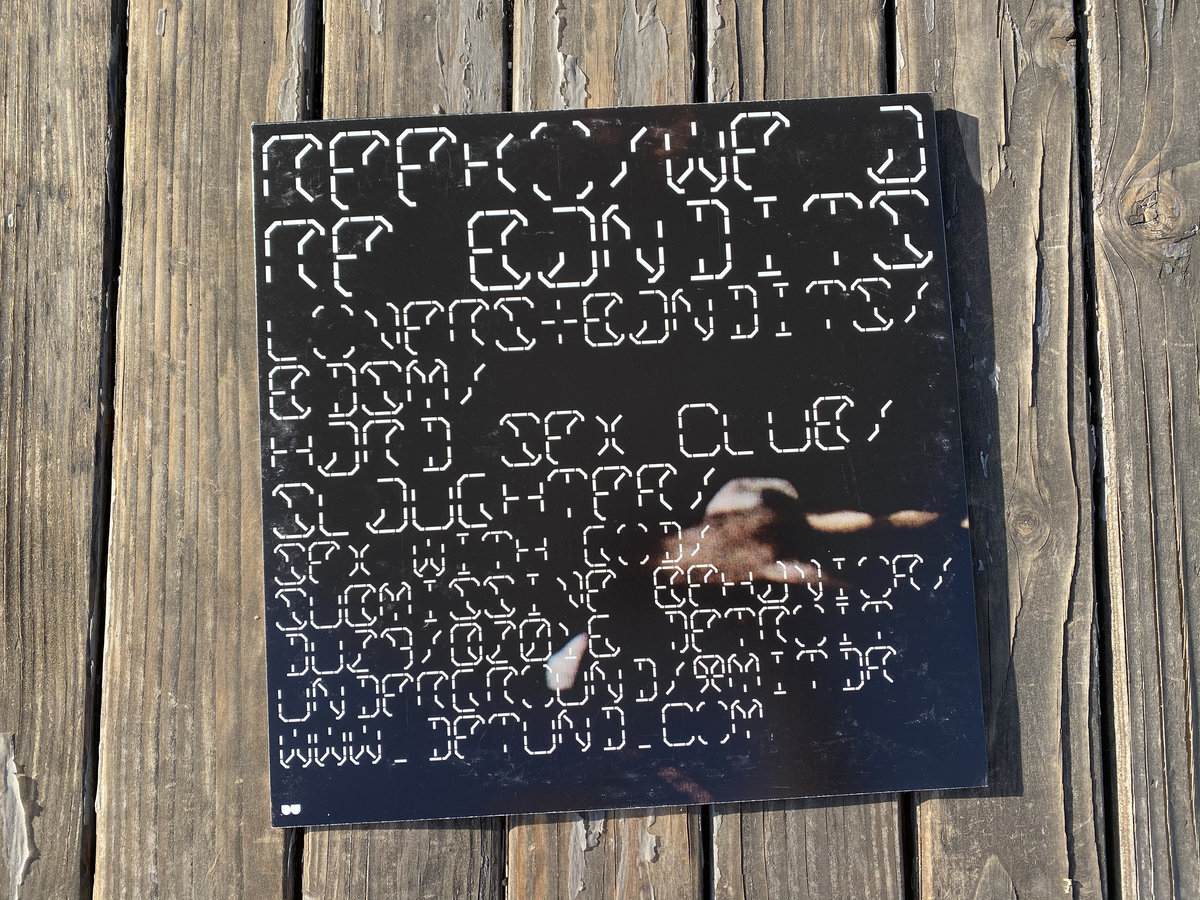 REEKO/WE A
RE BANDITS
LOVERS+BANDITS/
BDSM/
HARD SEX CLUB/
SLAUGHTER/
SEX WITH GOD/
SUBMISSIVE BEHAVIOR/
DETROIT
UNDERGROUND/
WWW.DETUND.COM